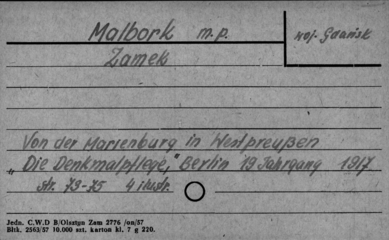 Malbork m.p. woj. Gdańsk
Zamek
Von der Marienburg in Westpreußen
"Die Denkmalpflege," Berlin 19 Jahrgang 1917
str. 73-75 4 ilustr.
Jedn. C.W.D B/Olsztyn Zam 2776 /on/57
Bltk. 2563/57 10.000 szt. karton kl. 7 g 220.